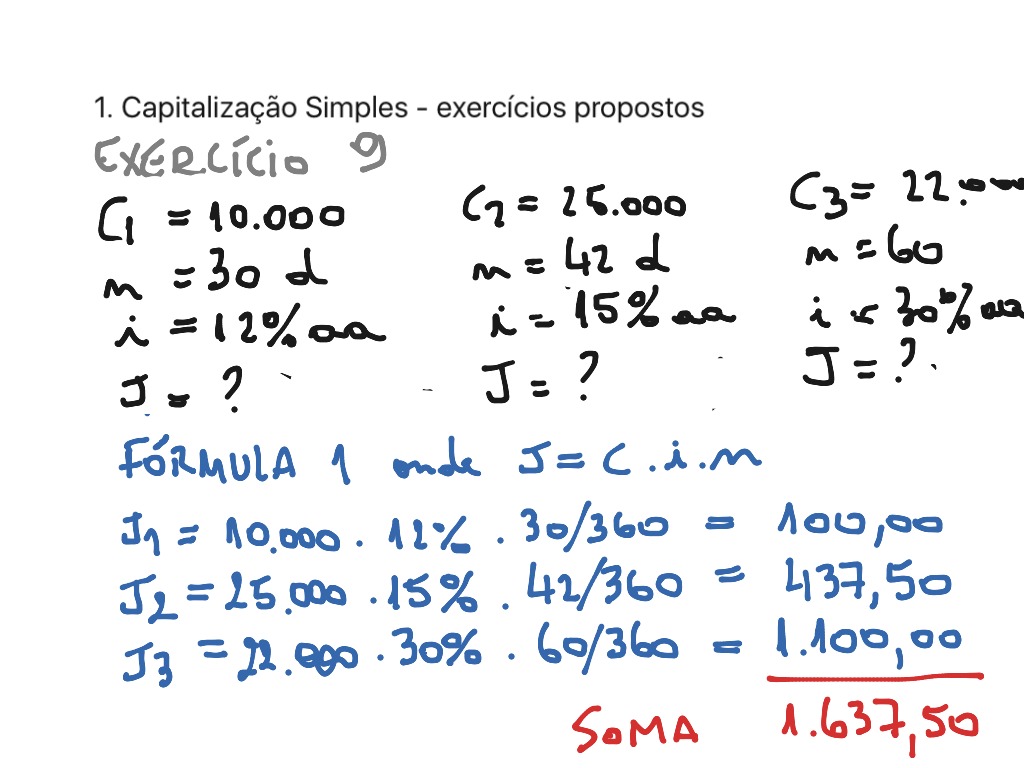 1. Capitalização Simples - exercícios propostos
EXERCÍCIO 9
C1 = 10.000 C2 = 25.000 C3 = 22.000
n = 30 d n = 42 d n = 60
i = 12% aa i = 15% aa i = 30% aa
J = ? J = ? J = ?
FÓRMULA 1 onde J = C . i . n
J1 = 10.000 . 12% . 30/360 = 100,00
J2 = 25.000 . 15% . 42/360 = 437,50
J3 = 22.000 . 30% . 60/360 = 1.100,00
SOMA 1.637,50